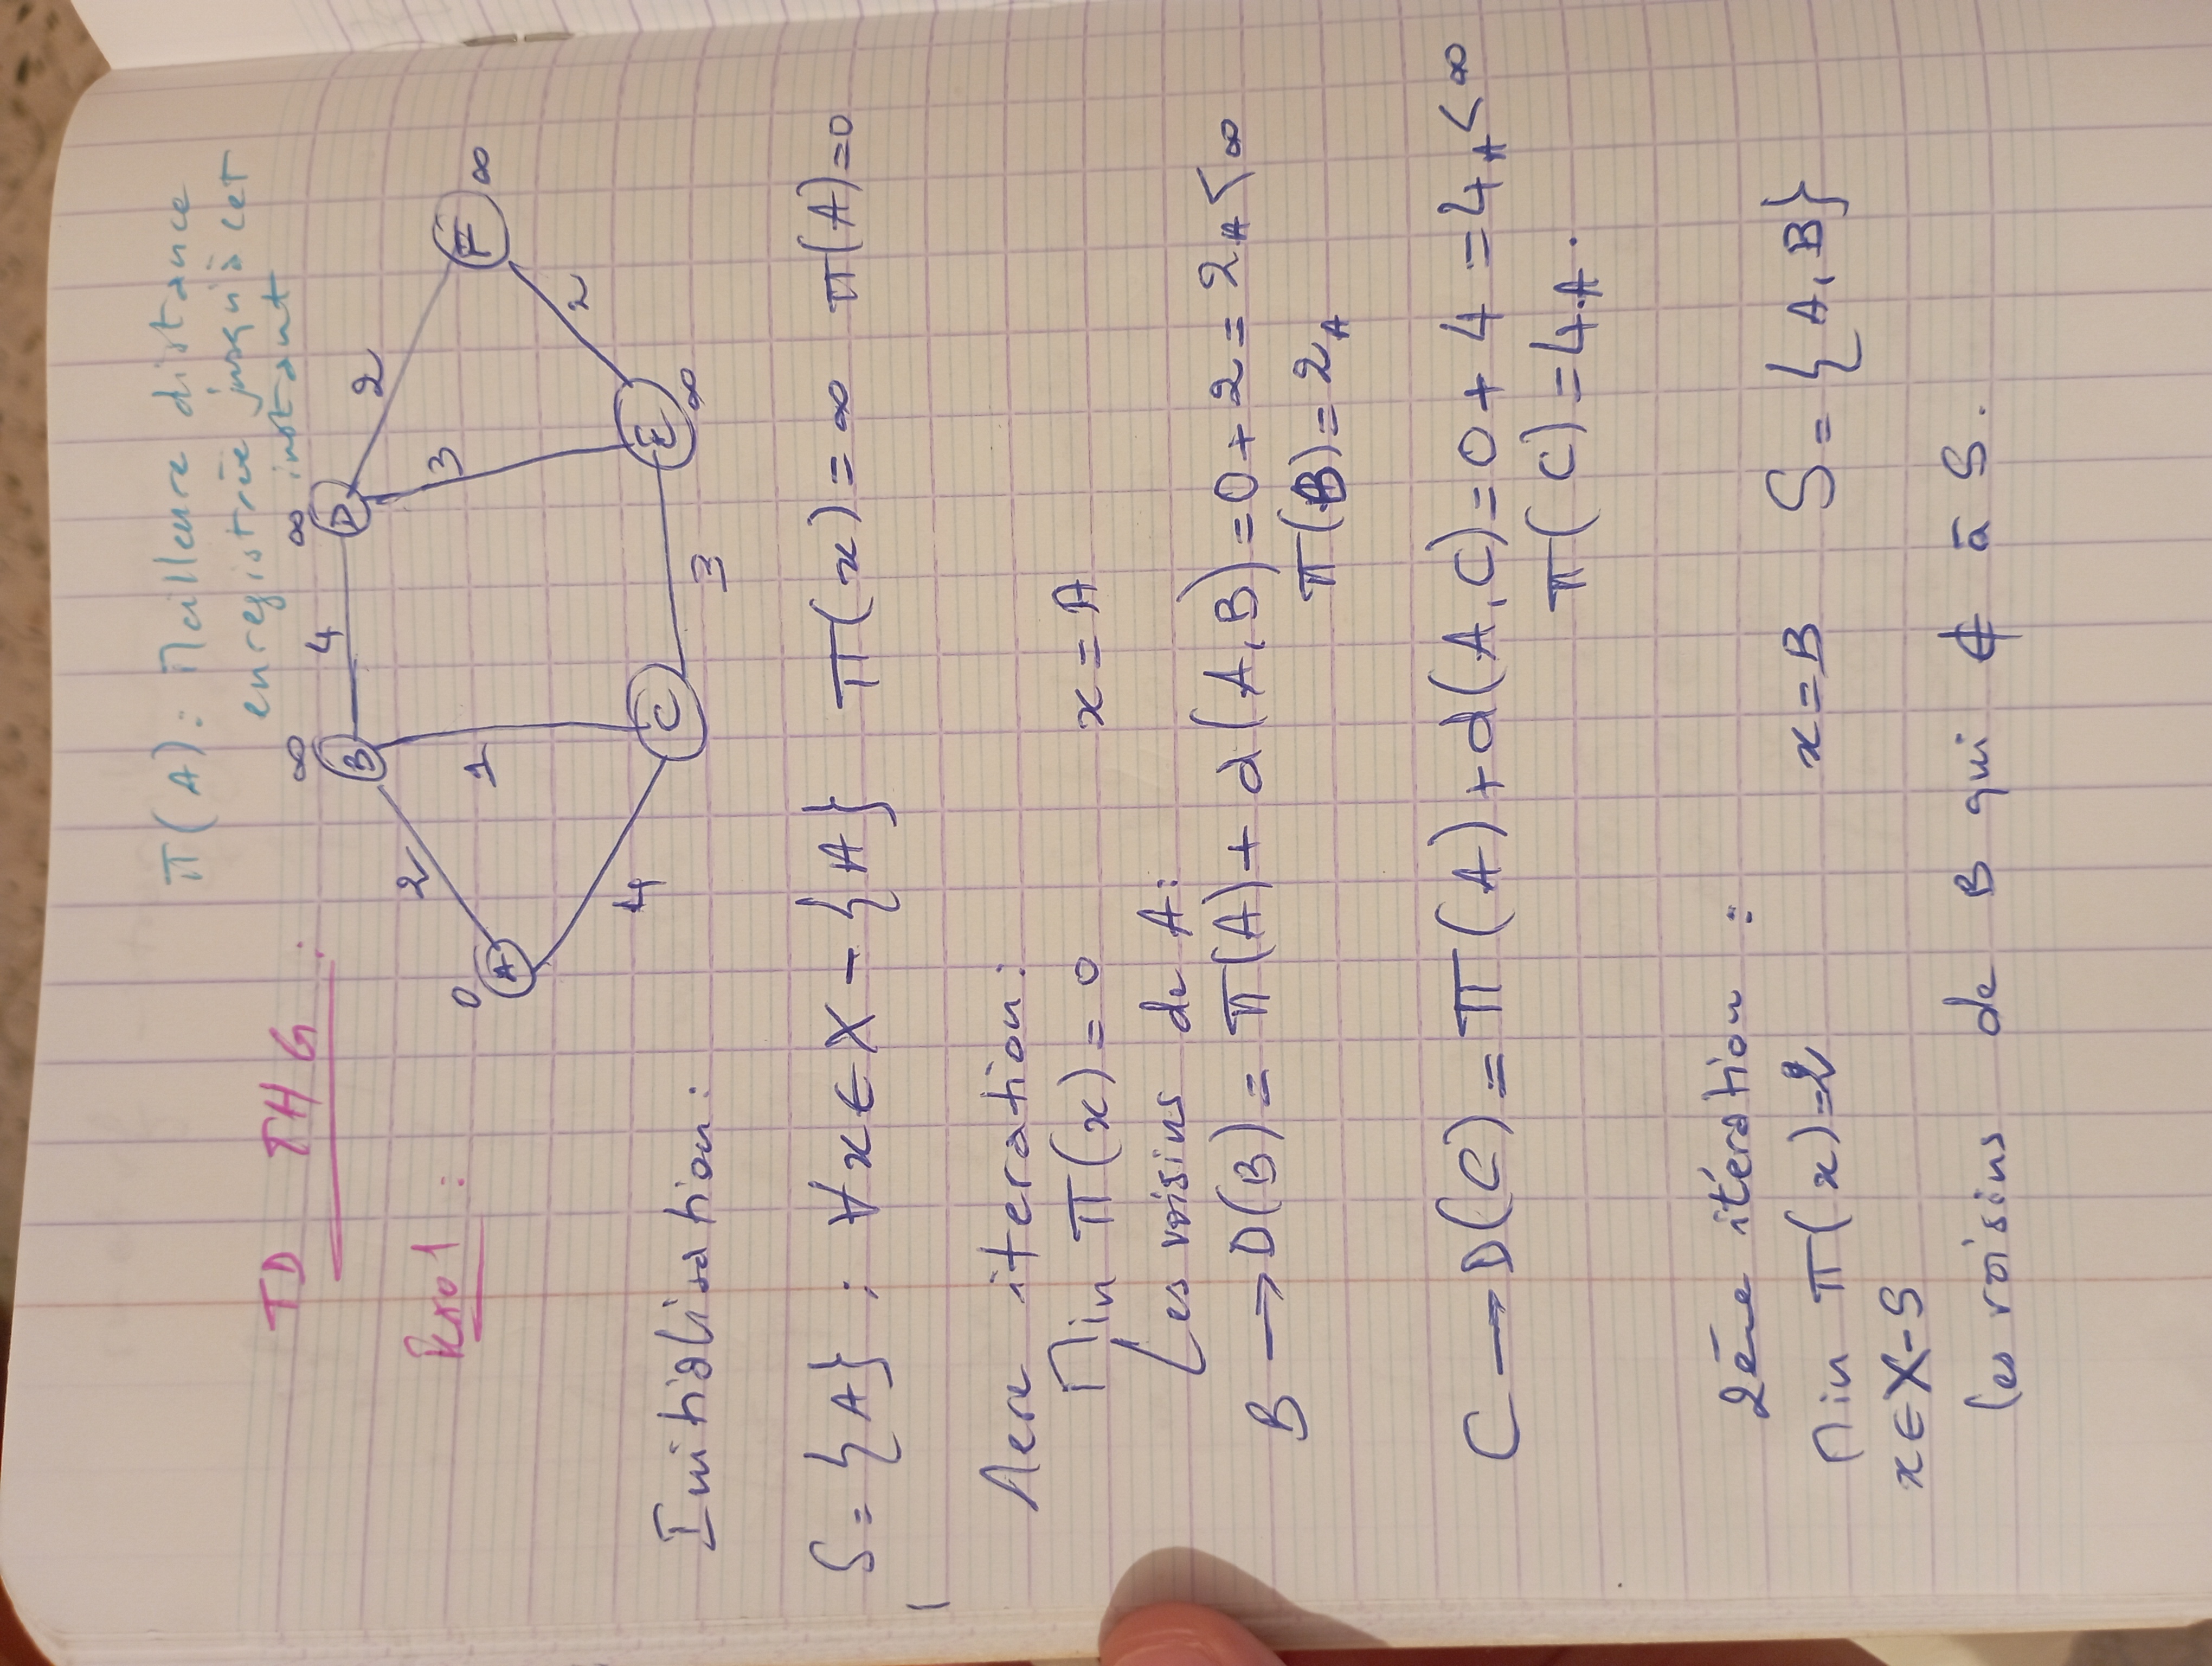 π(A): Meilleure distance
enregistrée jusqu'à cet
instant
TD THG :
Exo1 :
∞ ∞
B 4 D
2 2
0 A 1 3 F ∞
4 2
C 3 E ∞
Initialisation:
S = {A} ; ∀x ∈ X - {A} π(x) = ∞ π(A)=0
1ere iteration:
Min π(x) = 0 x = A
Les voisins de A:
B → D(B) = π(A) + d(A,B) = 0 + 2 = 2A < ∞
π(B) = 2A
C → D(C) = π(A) + d(A,C) = 0 + 4 = 4A < ∞
π(C) = 4.A.
2ème itération :
Min π(x)=2 x = B S = {A,B}
x ∈ X-S
les voisins de B qui ∉ à S.